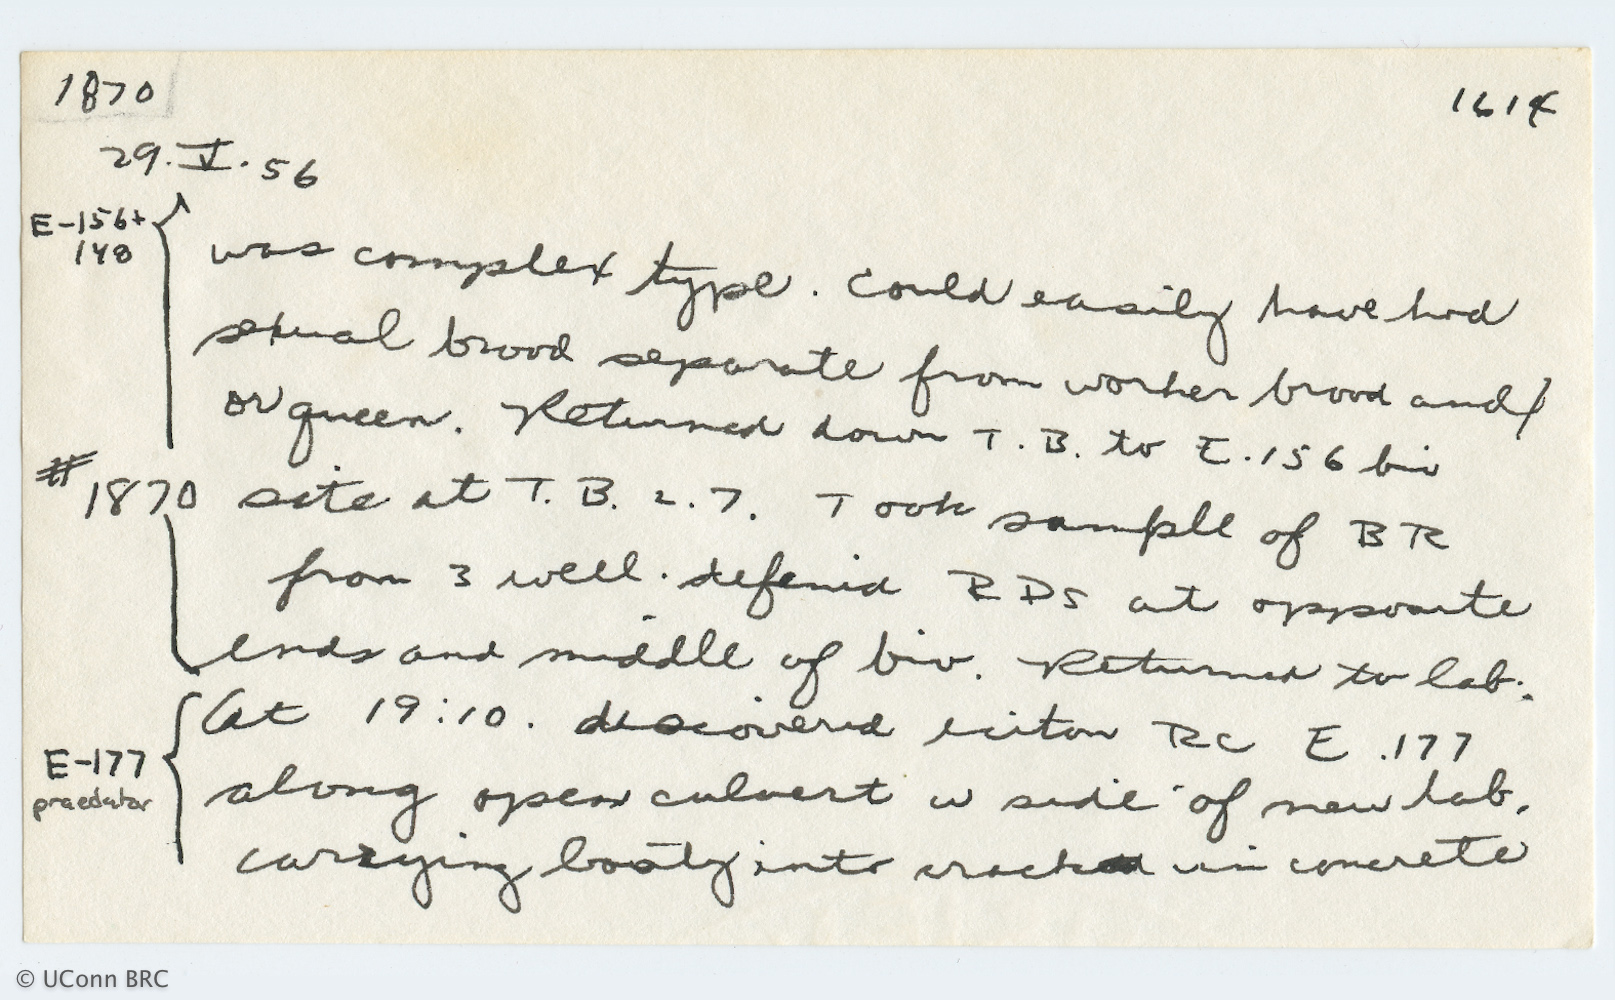 1870
1614
29.V.56
E-156+
148
was complex type. Could easily have had
sexual brood separate from worker brood and/
or queen. Returned down T.B. to E.156 biv
#1870 site at T.B. 2.7. Took sample of BR
from 3 well. defenid RDs at opposite
ends and middle of biv. Returned to lab.
At 19:10. discovered eciton RC E.177
E-177
praedator
along open culvert w side of new lab.
carrying booty into cracks in concrete
© UConn BRC